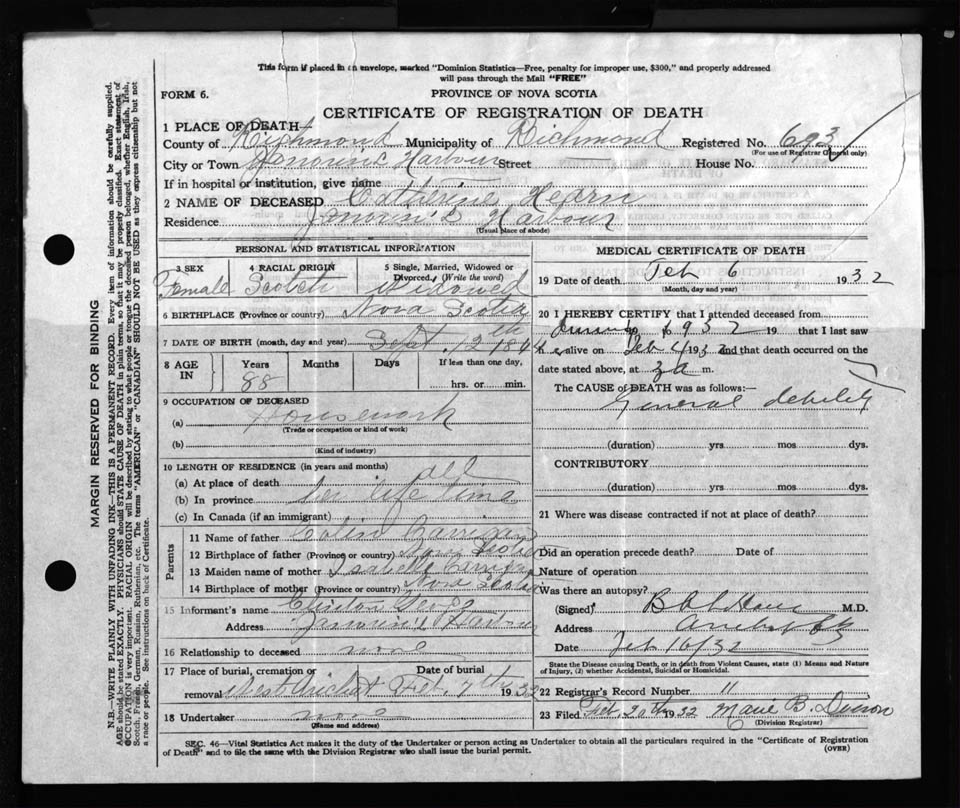 This form if placed in an envelope, marked "Dominion Statistics—Free, penalty for improper use, $300," and properly addressed
will pass through the Mail "FREE"
FORM 6.
PROVINCE OF NOVA SCOTIA
CERTIFICATE OF REGISTRATION OF DEATH
1 PLACE OF DEATH—
County of Richmond Municipality of Richmond Registered No. 693
(For use of Registrar General only)
City or Town Harbour Street House No.
If in hospital or institution, give name
2 NAME OF DECEASED Catherine Hearn
Residence Harbour
(Usual place of abode)
PERSONAL AND STATISTICAL INFORMATION
3 SEX 4 RACIAL ORIGIN 5 Single, Married, Widowed or
Divorced, (Write the word)
Female Scotch Widowed
6 BIRTHPLACE (Province or country) Nova Scotia
7 DATE OF BIRTH (month, day and year) Sept. 12th
8 AGE IN Years Months Days If less than one day,
88 hrs. or min.
9 OCCUPATION OF DECEASED
(a) Housework
(Trade or occupation or kind of work)
(b)
(Kind of industry)
10 LENGTH OF RESIDENCE (in years and months)
(a) At place of death all
(b) In province her life time
(c) In Canada (if an immigrant)
Parents
11 Name of father Colin
12 Birthplace of father (Province or country) Nova Scotia
13 Maiden name of mother Isabelle
14 Birthplace of mother (Province or country) Nova Scotia
15 Informant's name
Address Harbour
16 Relationship to deceased none
17 Place of burial, cremation or Date of burial
removal West Arichat Feb. 7th 1932
18 Undertaker none
(Name and address)
MEDICAL CERTIFICATE OF DEATH
19 Date of death Feb 6 1932
(Month, day and year)
20 I HEREBY CERTIFY that I attended deceased from
1932 19 that I last saw
h er alive on Feb 4 1932 and that death occurred on the
date stated above, at m.
The CAUSE of DEATH was as follows:—
General debility
(duration) yrs mos dys.
CONTRIBUTORY
(duration) yrs mos dys.
21 Where was disease contracted if not at place of death?
Did an operation precede death? Date of
Nature of operation
Was there an autopsy?
(Signed) M.D.
Address
Date Feb 10/32
State the Disease causing Death, or in death from Violent Causes, state (1) Means and Nature
of Injury, (2) whether Accidental, Suicidal or Homicidal.
22 Registrar's Record Number 11
23 Filed Feb 20th 1932 Marie B.
(Division Registrar)
SEC. 46—Vital Statistics Act makes it the duty of the Undertaker or person acting as Undertaker to obtain all the particulars required in the "Certificate of Registration
of Death" and to file the same with the Division Registrar who shall issue the burial permit. (OVER)
MARGIN RESERVED FOR BINDING
N.B.—WRITE PLAINLY WITH UNFADING INK—THIS IS A PERMANENT RECORD. Every item of information should be carefully supplied.
AGE should be stated EXACTLY. PHYSICIANS should STATE CAUSE OF DEATH in plain terms, so that it may be properly classified. Exact statement of
OCCUPATION is very important. RACIAL ORIGIN will be described by stating to what people or tongue the deceased person belonged, whether English, Irish,
Scotch, French, German, Russian, Ruthenian, etc. The terms "AMERICAN" or "CANADIAN" SHOULD NOT BE USED as they express citizenship but not
a race or people. See instructions on back of Certificate.